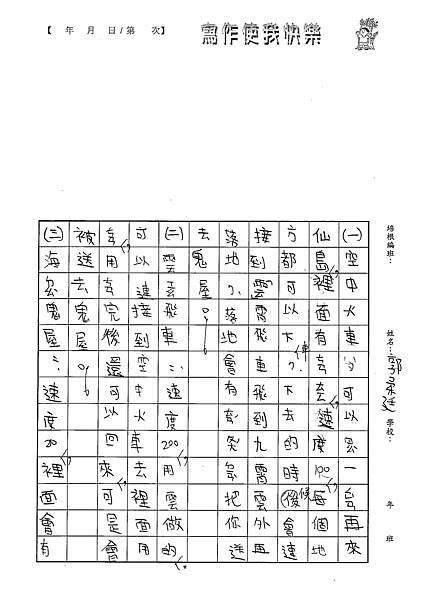 【 年 月 日/第 次】
寫作使我快樂
培根編班：
姓名：
學校：
年 班
(一)空中火車 可以 一台再來
仙島裡面有 去速度100每個地
方都可以下 去的時候會速
接到雲飛車飛到九霄雲外再
落地 地會有 把你送
去鬼屋。
(二)雲 車：速度200用雲做的
可以連接到空中火車去裡面用
用 完後還可以回來可是會
被送去鬼屋。
(三)海 鬼屋：速度20裡面會有